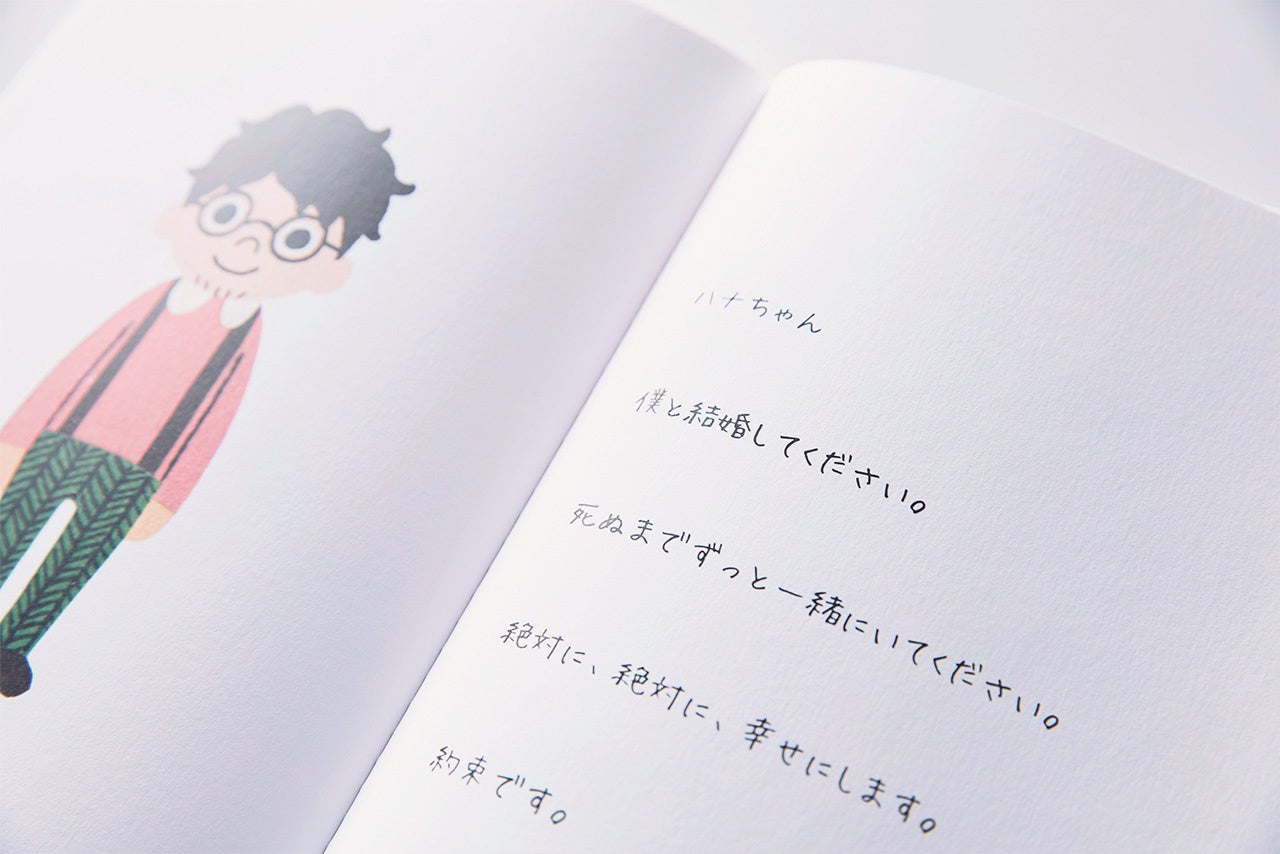 ハナちゃん
僕と結婚してください。
死ぬまでずっと一緒にいてください。
絶対に、絶対に、幸せにします。
約束です。